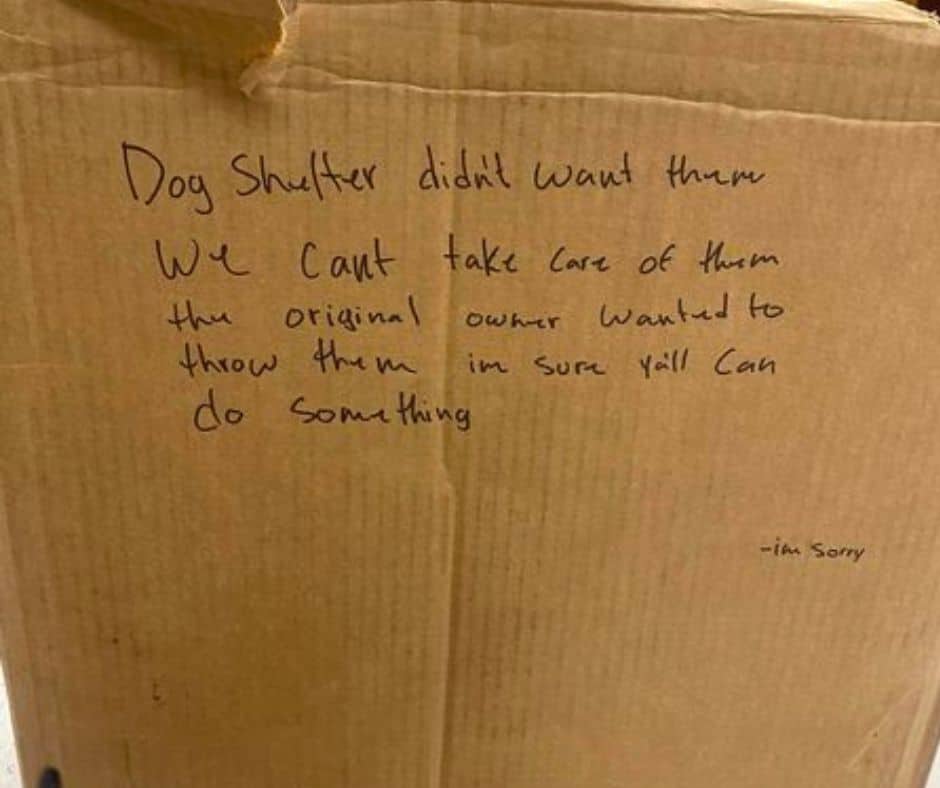 Dog Shelter didn't want them
We cant take care of them
the original owner wanted to
throw them im sure y'all can
do something
-im sorry